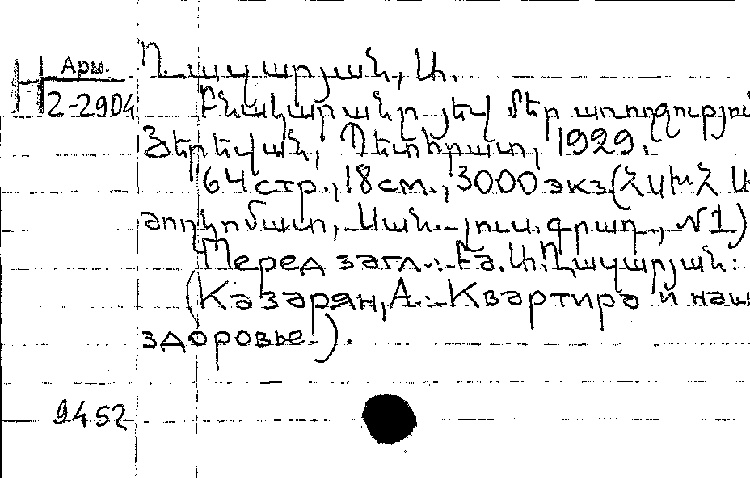 Арм.
Н 2-2904
Ղազարյան, Ա.
Բնակարանը յեվ մեր առողջությու
Յերեվան, Պետհրատ, 1929.
64 стр., 18 см., 3000 экз. (ՀՍԽՀ Ա
ժողկոմատ, Սան.-լուս. գրադ., №1)
Перед загл.: Բժ. Ա. Ղազարյան:
(Казарян, А.: Квартира и наше
здоровье.).
9452